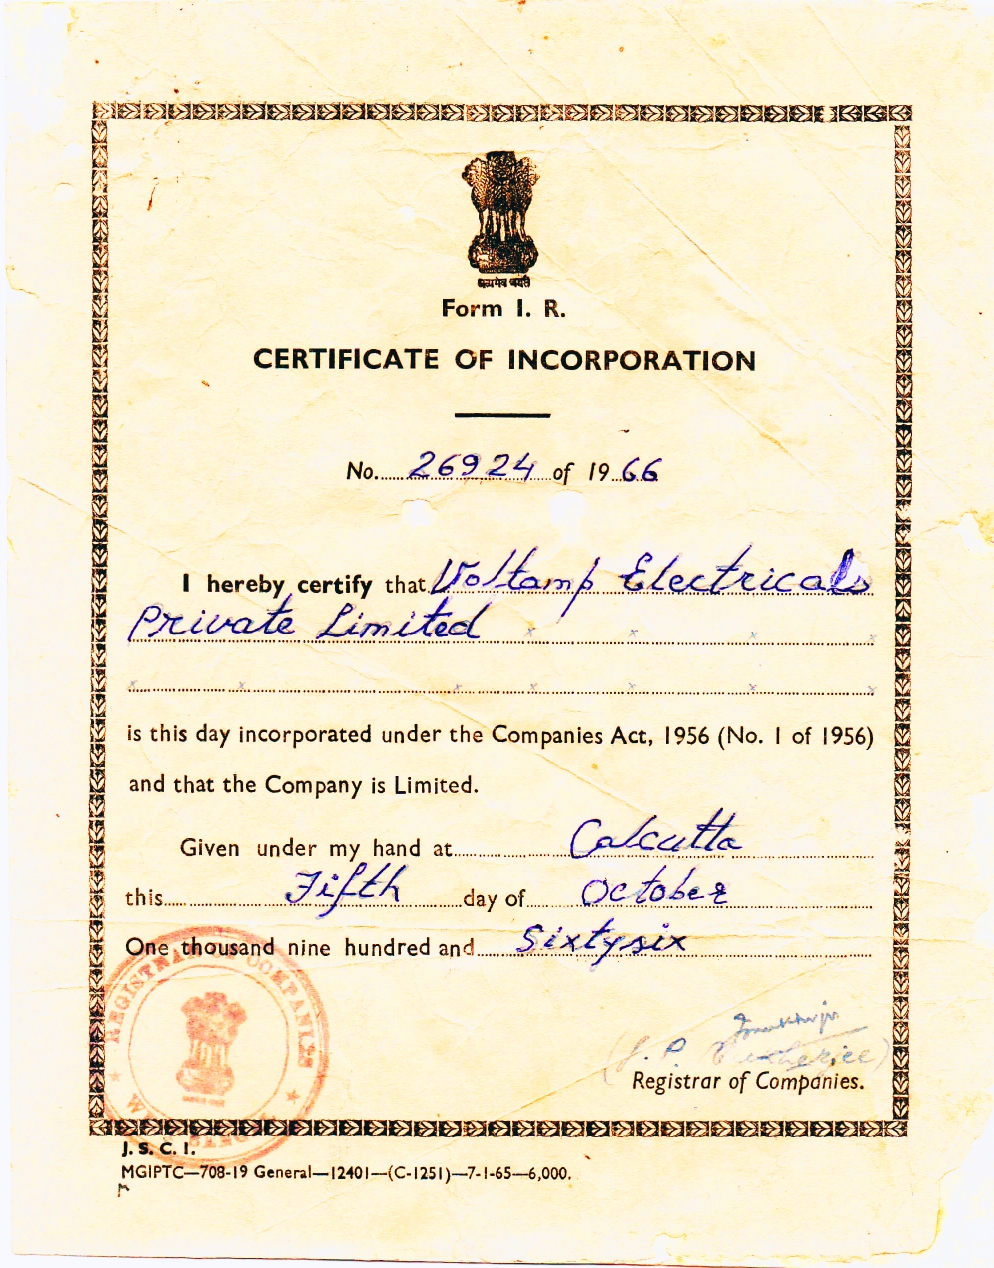 सत्यमेव जयते
Form I. R.
CERTIFICATE OF INCORPORATION
No. 26924 of 1966
I hereby certify that Voltamp Electricals
Private Limited
is this day incorporated under the Companies Act, 1956 (No. 1 of 1956)
and that the Company is Limited.
Given under my hand at Calcutta
this Fifth day of October
One thousand nine hundred and Sixtysix
REGISTRAR OF COMPANIES
WEST BENGAL
Registrar of Companies.
J. S. C. I.
MGIPTC—708-19 General—12401—(C-1251)—7-1-65—6,000.